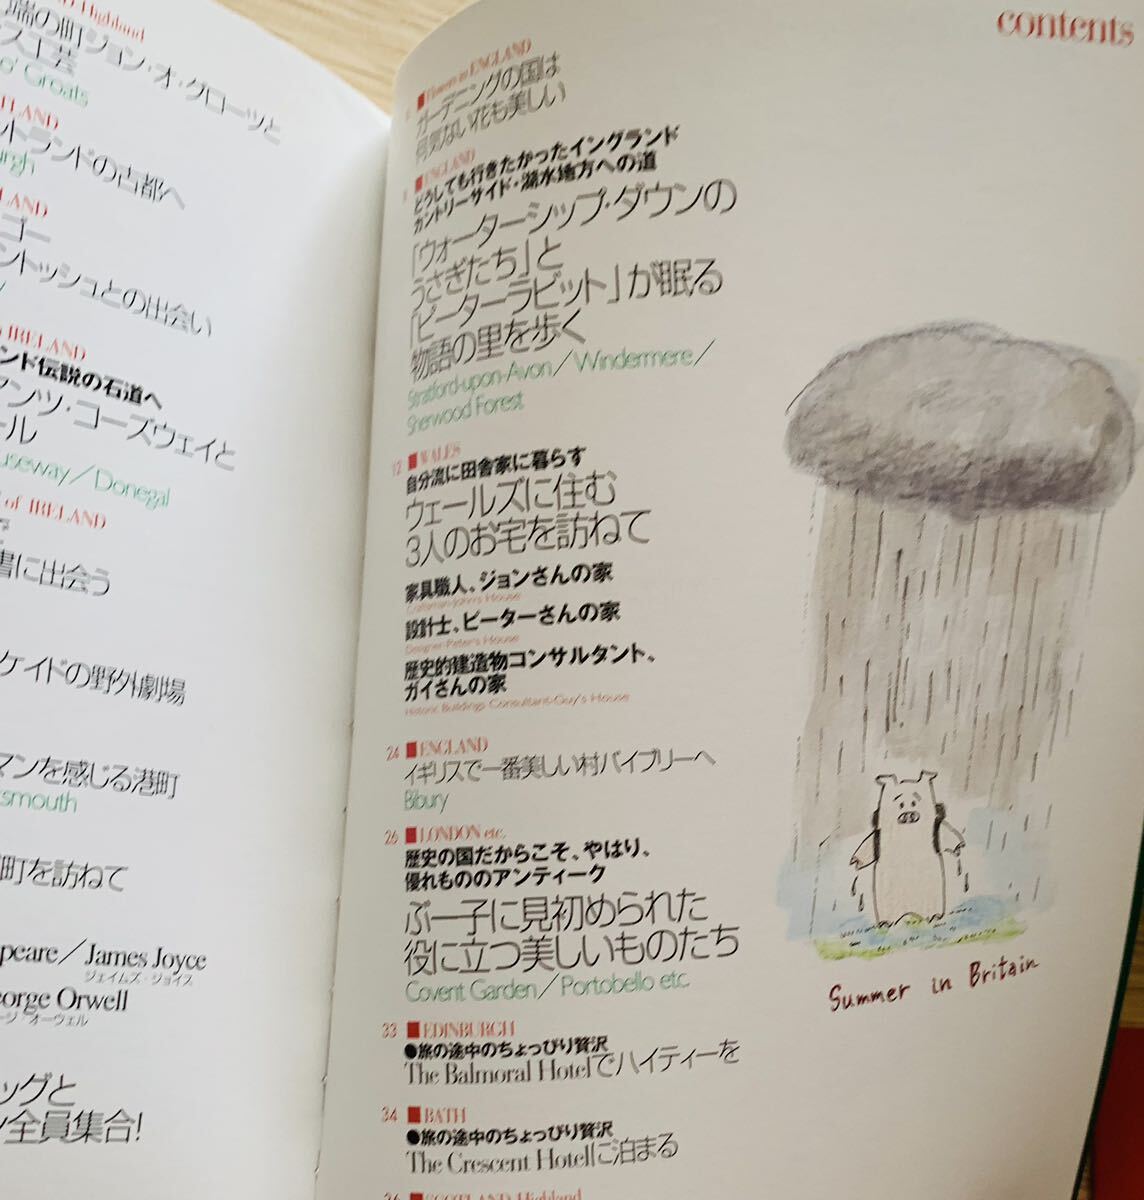 Highland
端の町ジョン・オ・グローツと
ス工芸
o' Groats
LAND
ットランドの古都へ
urgh
LAND
ゴー
ントッシュとの出会い
IRELAND
ンド伝説の石道へ
アンツ・コーズウェイと
ール
useway／Donegal
of IRELAND
書に出会う
ケイドの野外劇場
マンを感じる港町
tsmouth
町を訪ねて
peare／James Joyce
ジェイムズ・ジョイス
eorge Orwell
ージ オーウェル
ッグと
ン全員集合!
contents
■Flowers in ENGLAND
ガーデニングの国は
何気ない花も美しい
■ENGLAND
どうしても行きたかったイングランド
カントリーサイド・湖水地方への道
「ウォーターシップ・ダウンの
うさぎたち」と
「ピーターラビット」が眠る
物語の里を歩く
Stratford-upon-Avon／Windermere／
Sherwood Forest
12 ■WALES
自分流に田舎家に暮らす
ウェールズに住む
3人のお宅を訪ねて
家具職人、ジョンさんの家
Craftsman-John's House
設計士、ピーターさんの家
Designer-Peter's House
歴史的建造物コンサルタント、
ガイさんの家
Historic Buildings Consultant-Guy's House
24 ■ENGLAND
イギリスで一番美しい村バイブリーへ
Bibury
26 ■LONDON etc.
歴史の国だからこそ、やはり、
優れもののアンティーク
ぶー子に見初められた
役に立つ美しいものたち
Covent Garden／Portobello etc.
33 ■EDINBURGH
●旅の途中のちょっぴり贅沢
The Balmoral Hotelでハイティーを
34 ■BATH
●旅の途中のちょっぴり贅沢
The Crescent Hotelに泊まる
36 ■SCOTLAND Highland
Summer in Britain